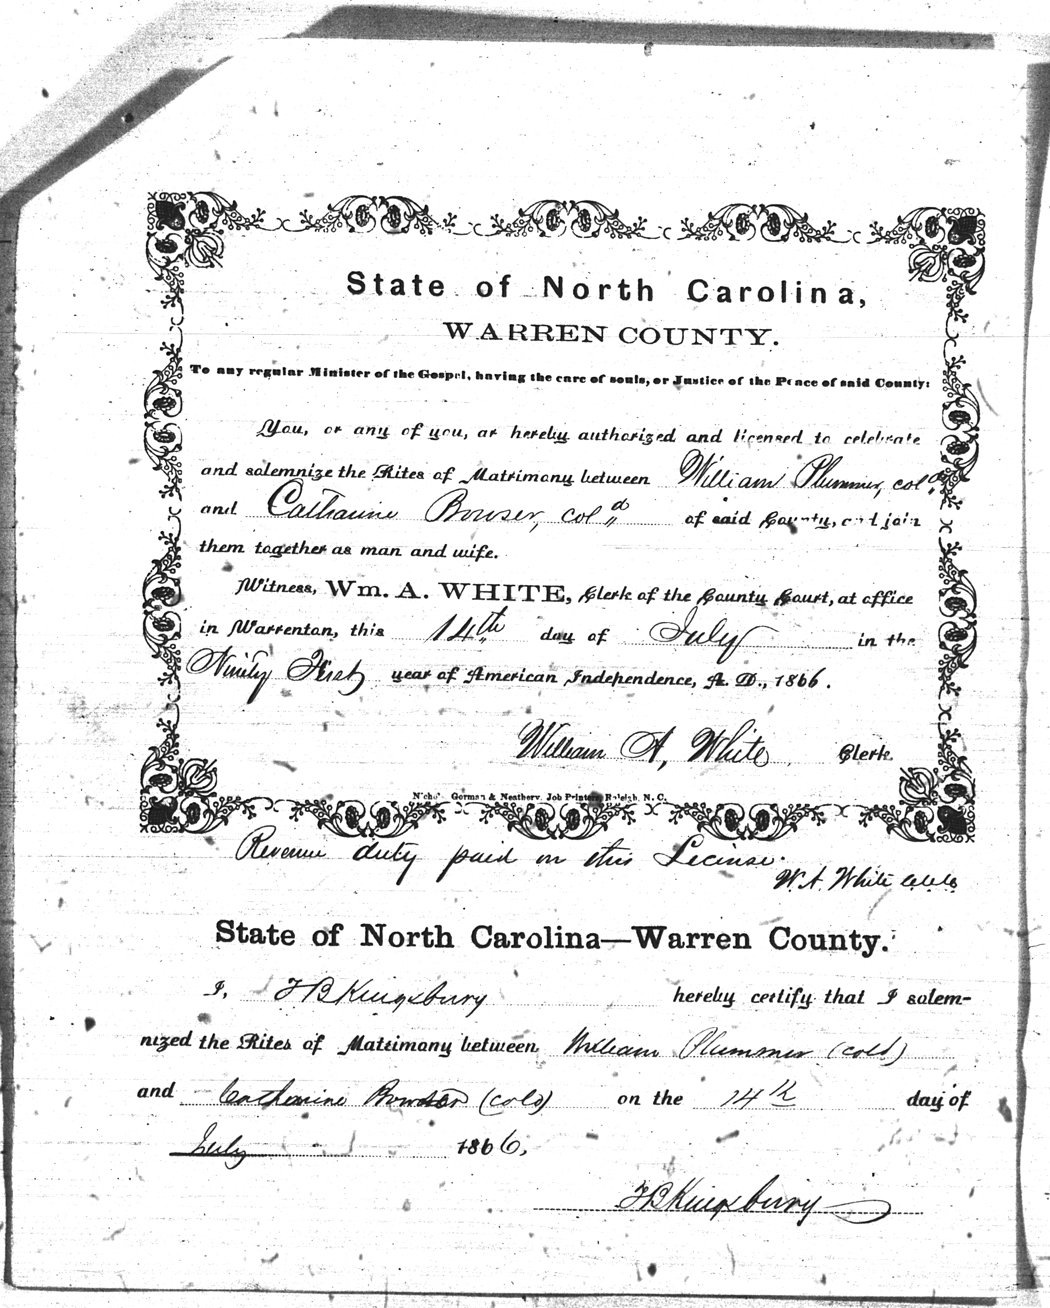 State of North Carolina,
WARREN COUNTY.
To any regular Minister of the Gospel, having the care of souls, or Justice of the Peace of said County:
You, or any of you, ar hereby authorized and licensed to celebrate
and solemnize the Rites of Matrimony between William Plummer, col,,d
and Catharine Bowser, col,,d of said County, and join
them together as man and wife.
Witness, Wm. A. WHITE, Clerk of the County Court, at office
in Warrenton, this 14th day of July in the
Ninety First year of American Independence, A. D., 1866.
William A, White Clerk.
Gorman & Neathery, Job Printers, Raleigh, N. C.
Revenue duty paid on this Lecinse.
W. A. White
State of North Carolina—Warren County.
I, T B Kingsbury hereby certify that I solem-
nized the Rites of Matrimony between William Plummer (cold)
and Catharine Bowser (cold) on the 14th day of
July 1866,
T B Kingsbury